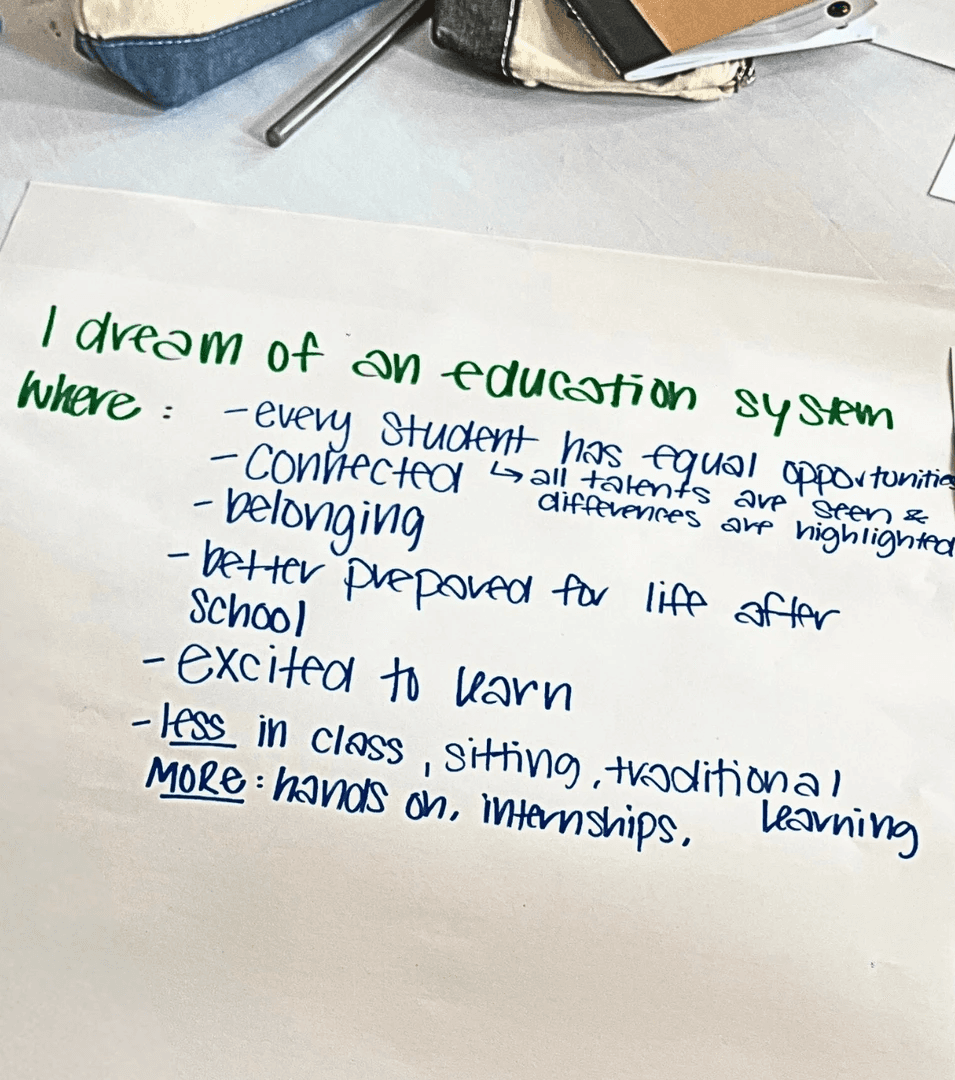 I dream of an education system
where: - every student has equal opportunities
↳ all talents are seen &
differences are highlighted
- connected
- belonging
- better prepared for life after
school
- excited to learn
- less in class, sitting, traditional
learning
MORE: hands on, internships,